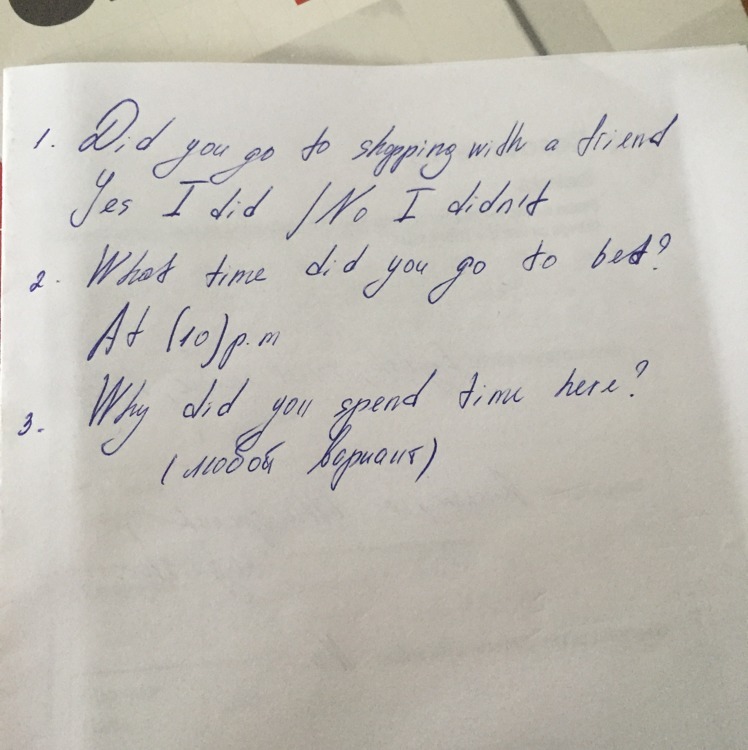 1. Did you go to shopping with a friend
Yes I did /No I didn't
2. What time did you go to bet?
At (10) p.m
3. Why did you spend time here?
(любой вариант)